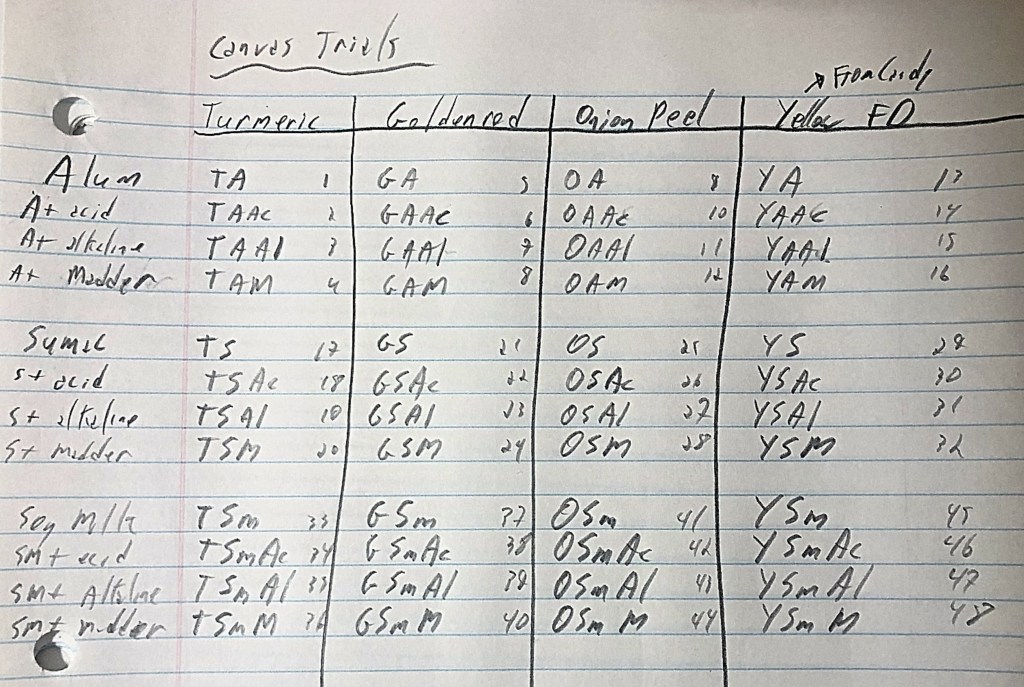 Canvas Trials
From Candy
Turmeric Goldenrod Onion Peel Yellow FD
Alum TA 1 GA 5 OA 9 YA 13
A+ acid TAAc 2 GAAc 6 OAAc 10 YAAc 14
A+ alkaline TAAl 3 GAAl 7 OAAl 11 YAAl 15
A+ Madder TAM 4 GAM 8 OAM 12 YAM 16
Sumac TS 17 GS 21 OS 25 YS 29
S+ acid TSAc 18 GSAc 22 OSAc 26 YSAc 30
S+ alkaline TSAl 19 GSAl 23 OSAl 27 YSAl 31
S+ madder TSM 20 GSM 24 OSM 28 YSM 32
Soy Milk TSm 33 GSm 37 OSm 41 YSm 45
Sm+ acid TSmAc 34 GSmAc 38 OSmAc 42 YSmAc 46
Sm+ Alkaline TSmAl 35 GSmAl 39 OSmAl 43 YSmAl 47
Sm+ madder TSmM 36 GSmM 40 OSmM 44 YSmM 48